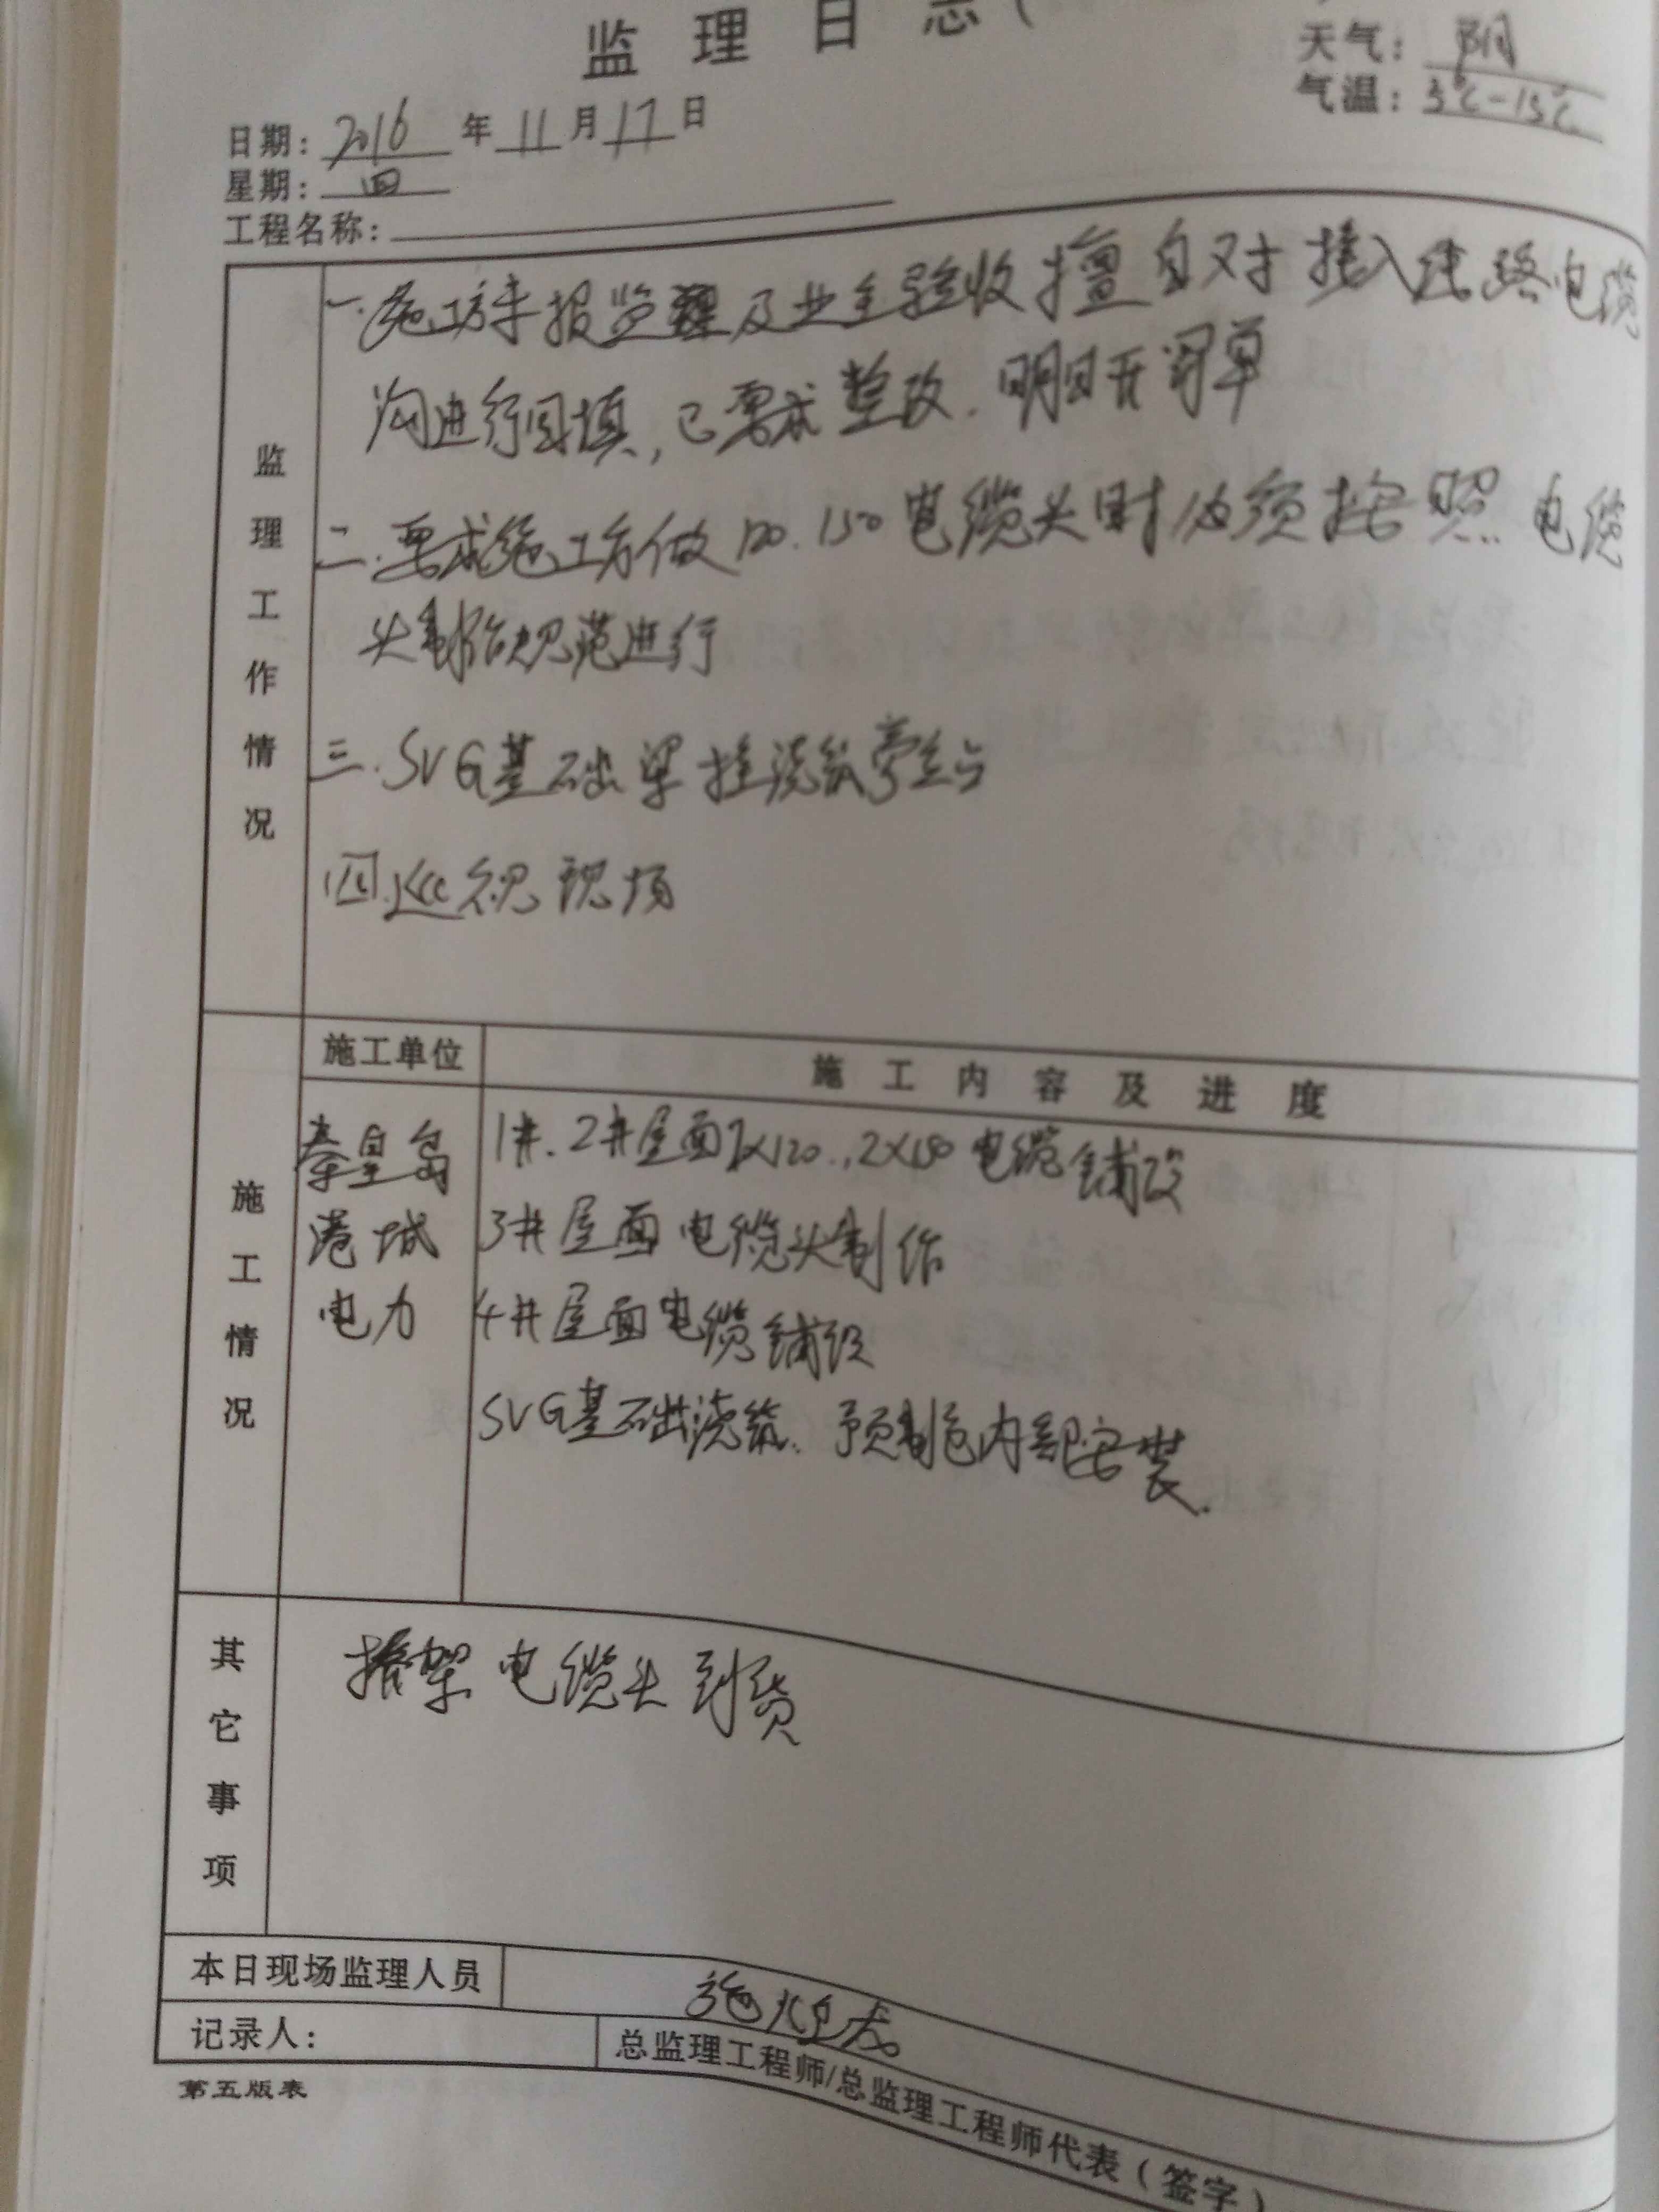 监理日志(
天气: 阴
气温: 3℃-15℃
日期: 2016年11月17日
星期: 四
工程名称:
监理工作情况
一.施工方未报监理及业主验收擅自对接入线路电缆
沟进行回填,已要求整改.明日开罚单
二.要求施工方做120.150电缆头时必须按照电缆
头制作规范进行
三.SVG基础梁柱浇筑旁站
四.巡视现场
施工情况
施工单位 施工内容及进度
秦皇岛
港城
电力
1#.2#屋面2×120.,2×150电缆铺设
3#屋面电缆头制作
4#屋面电缆铺设
SVG基础浇筑.预制仓内部安装.
其它事项
桥架电缆头到货
本日现场监理人员 施
记录人:
总监理工程师/总监理工程师代表(签字)
第五版表